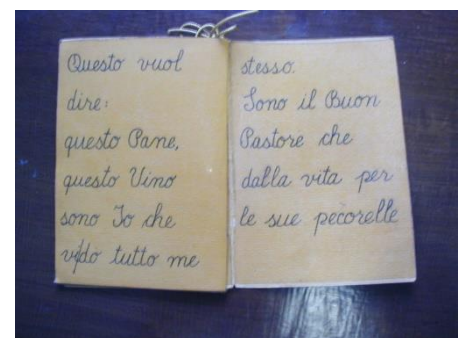 Questo vuol
dire:
questo Pane,
questo Vino
sono Io che
vi/do tutto me
stesso.
Sono il Buon
Pastore che
dalla vita per
le sue pecorelle